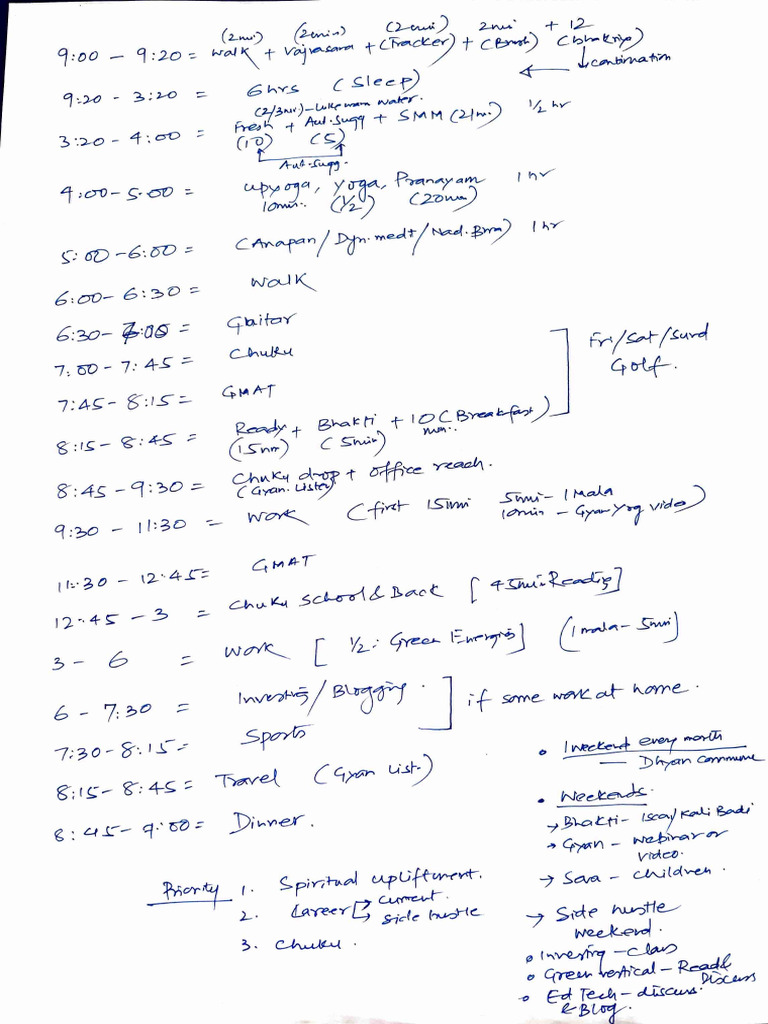 (2min) (2min) (2min) 2min + 12
9:00 - 9:20 = walk + Vajrasana + (Tracker) + (Brush) (Bhaktiyo)
continuation
9:20 - 3:20 = 6hrs (Sleep)
(2/3mir) - Lukewarm water.
3:20 - 4:00 = Fresh + Aut.Sugg + SMM (21mi) 1/2 hr
(10) (5)
Aut.Sugg.
4:00-5:00 = upyoga, yoga, Pranayam 1 hr
10min. (1/2) (20min)
5:00 - 6:00 = (Anapan/Dyn.medt/Nad.Brm) 1hr
6:00 - 6:30 = walk
6:30 - 7:00 = Guitar
7:00 - 7:45 = Chuku
Fri/Sat/Sund
Golf.
7:45 - 8:15 = GMAT
8:15 - 8:45 = Ready + Bhakti + 10 (Breakfast)
(15min) (5min) min.
8:45 - 9:30 = Chuku drop + office reach.
(Gyan. Listen)
9:30 - 11:30 = work (first 15mi 5mi - 1 Mala
10min - Gyan Yog video)
11:30 - 12:45 = GMAT
12:45 - 3 = Chuku School & Back [45mi. Reading]
3 - 6 = work [1/2: Green Energies] (1mala - 5mi]
6 - 7:30 = Investing/Blogging. if some work at home.
7:30-8:15 = Sports
8:15 - 8:45 = Travel (Gyan List.)
8:45 - 9:00 = Dinner.
• 1 weekend every month
— Dhyan commune
• Weekends.
→ Bhakti - Iscq/Kali Badi
→ Gyan - webinar or
video.
→ Seva - children.
→ Side hustle
weekend.
• Investing - Class
• Green vertical - Read &
Discuss
• Ed Tech - discuss.
& Blog.
Priority 1. Spiritual upliftment.
2. Career → current
→ side hustle
3. Chuku.